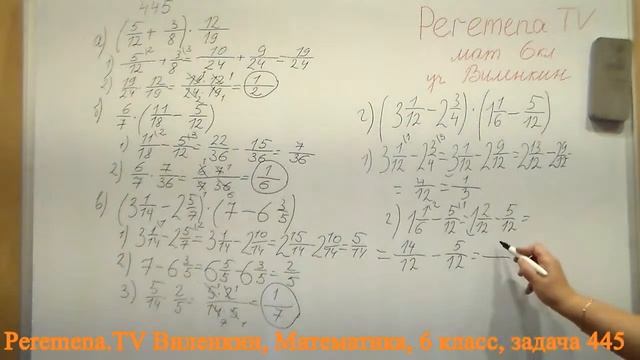 445
Peremena TV
мат 6кл
уч Виленкин
а) (5/12 + 3/8) · 12/19
1) 5/12 + 3/8 = 10/24 + 9/24 = 19/24
2) 19/24 · 12/19 = 19·12/24·19 = 1/2
б) 6/7 · (11/18 − 5/12)
1) 11/18 − 5/12 = 22/36 − 15/36 = 7/36
2) 6/7 · 7/36 = 6·7/7·36 = 1/6
в) (3 1/14 − 2 5/7) · (7 − 6 3/5)
1) 3 1/14 − 2 5/7 = 3 1/14 − 2 10/14 = 2 15/14 − 2 10/14 = 5/14
2) 7 − 6 3/5 = 6 5/5 − 6 3/5 = 2/5
3) 5/14 · 2/5 = 5·2/14·5 = 1/7
г) (3 1/12 − 2 3/4) · (1 1/6 − 5/12)
1) 3 1/12 − 2 3/4 = 3 1/12 − 2 9/12 = 2 13/12 − 2 9/12
= 4/12 = 1/3
2) 1 1/6 − 5/12 = 1 2/12 − 5/12 =
= 14/12 − 5/12 =
Peremena.TV Виленкин, Математика, 6 класс, задача 445